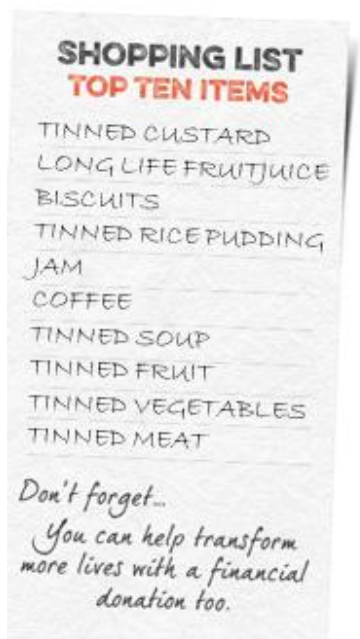 SHOPPING LIST
TOP TEN ITEMS
TINNED CUSTARD
LONG LIFE FRUITJUICE
BISCUITS
TINNED RICE PUDDING
JAM
COFFEE
TINNED SOUP
TINNED FRUIT
TINNED VEGETABLES
TINNED MEAT
Don't forget...
You can help transform
more lives with a financial
donation too.